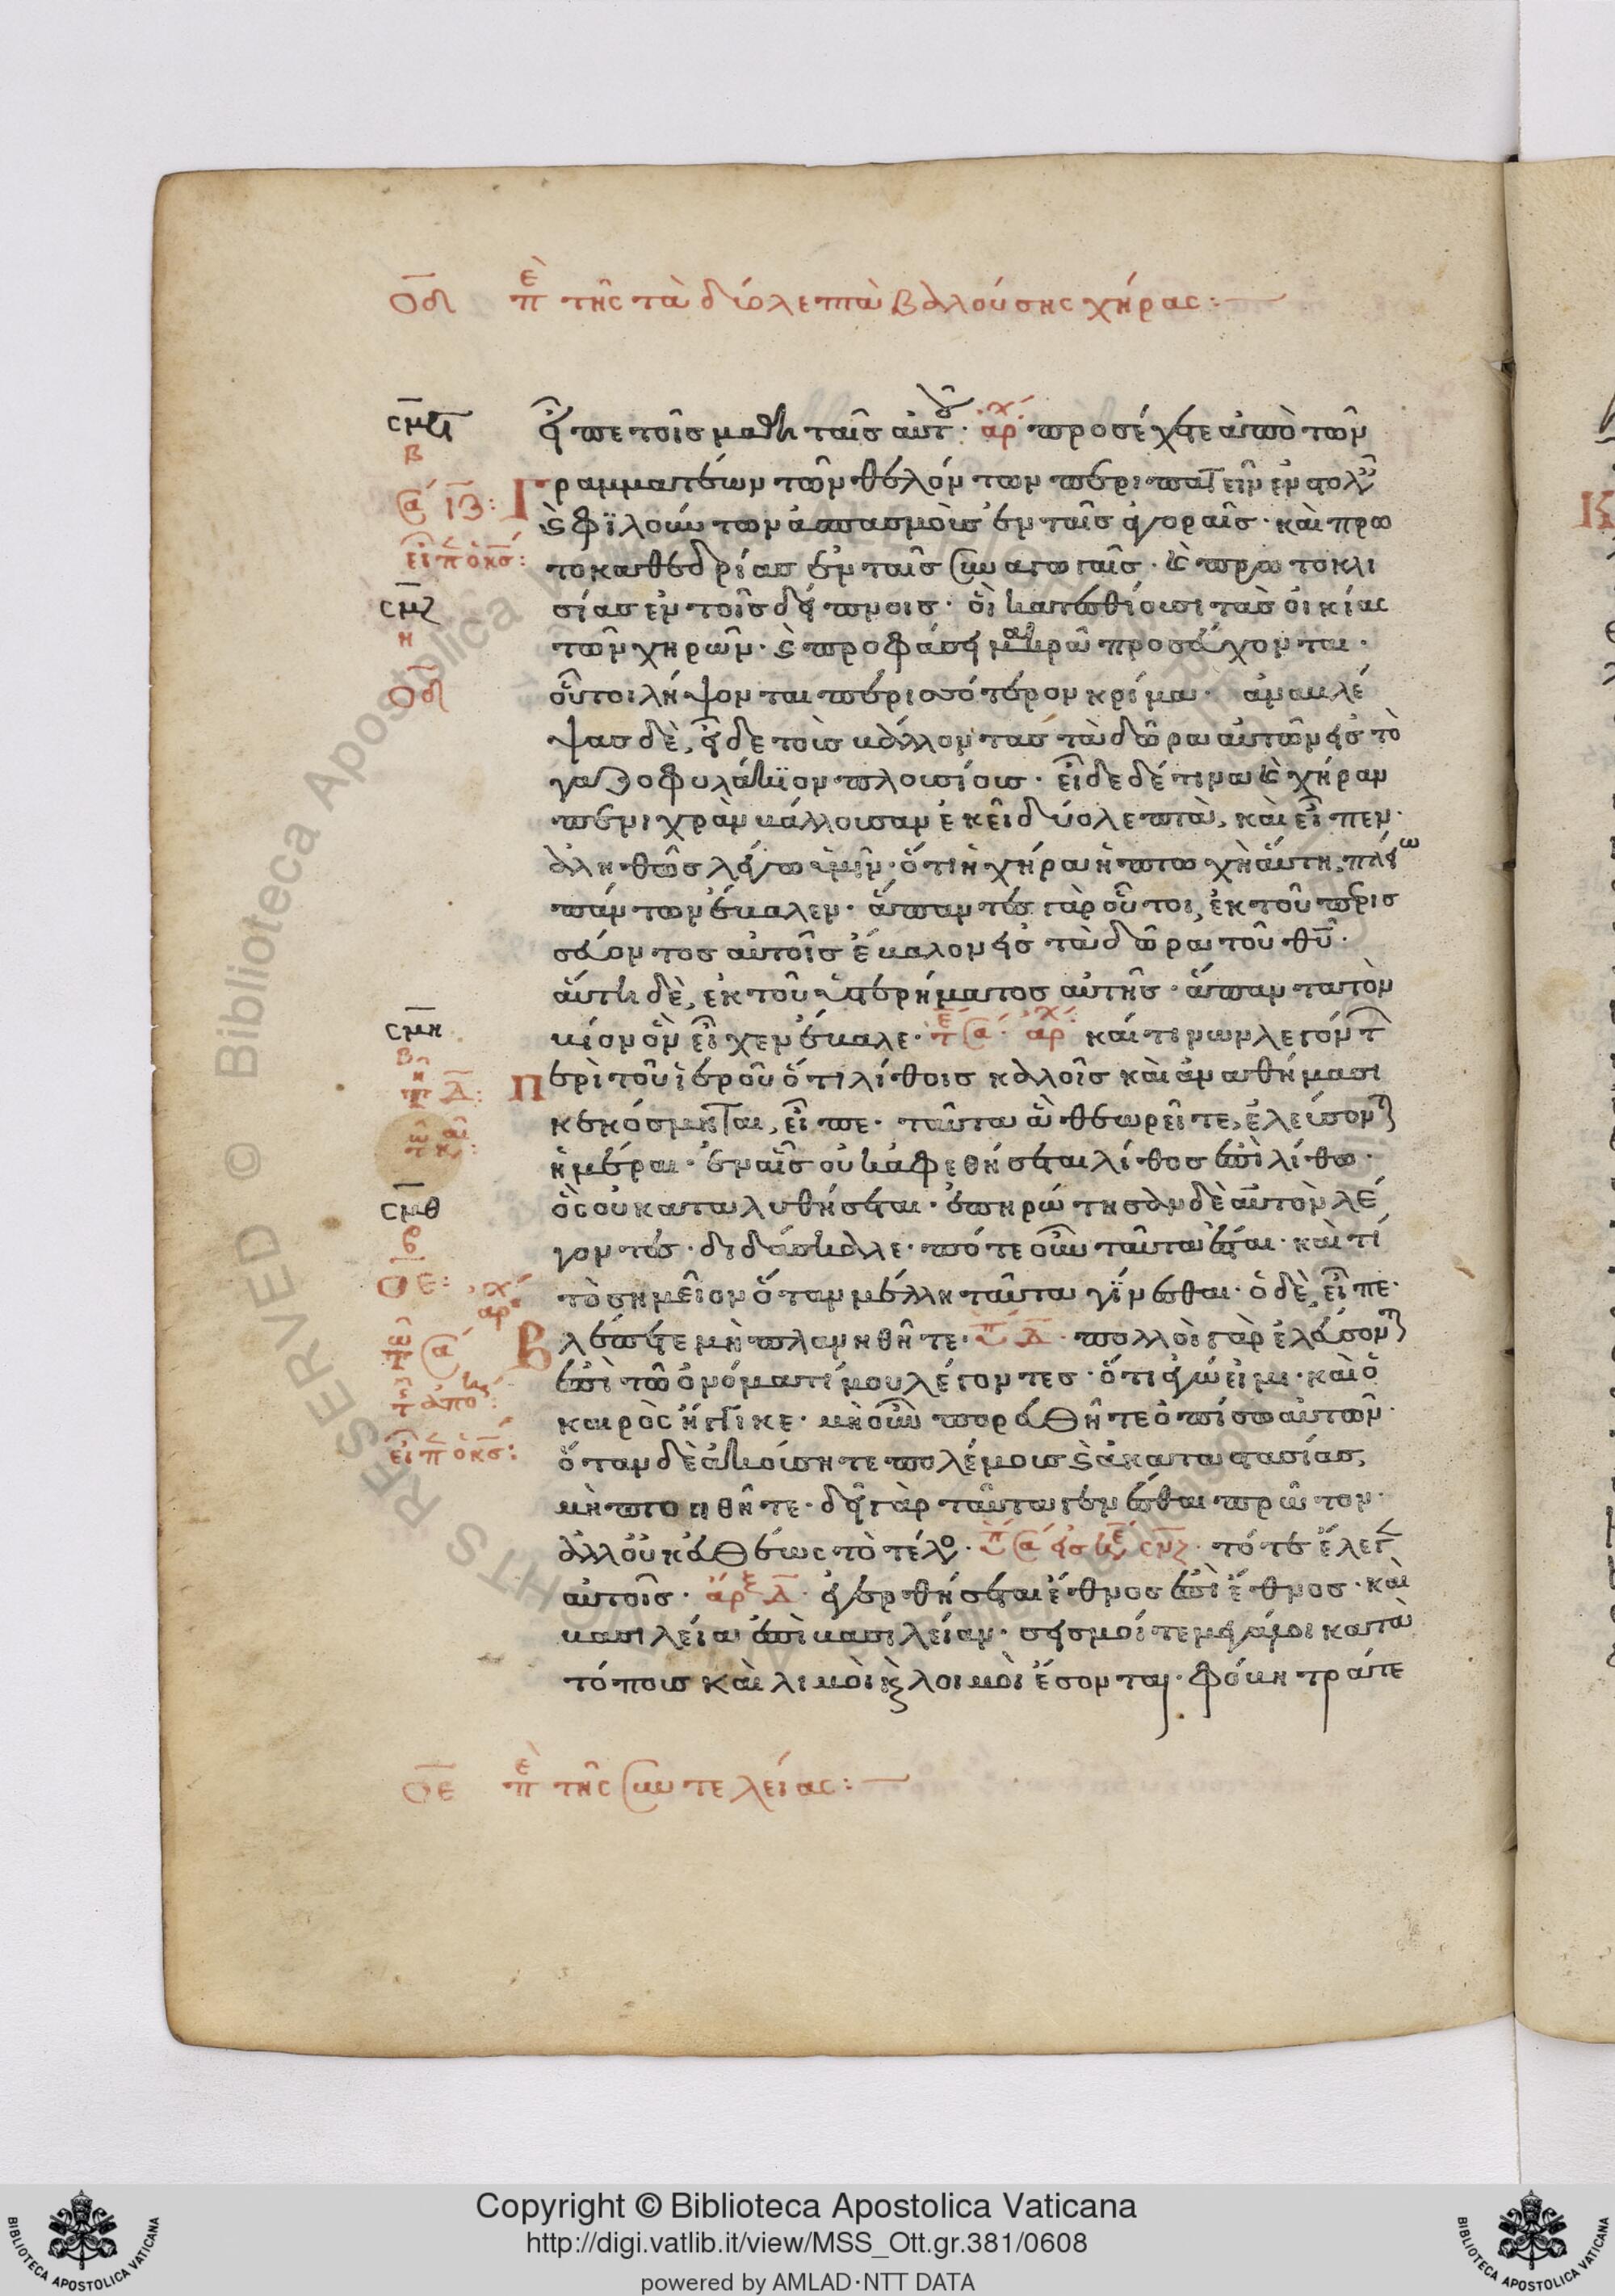 ΟΔ πε τῆς τὰ δύο λεπτὰ βαλούσης χήρας:
εἶπε τοῖς μαθηταῖς αὐτοῦ· ἀρχ προσέχετε ἀπὸ τῶν
γραμματέων τῶν θελόντων περιπατεῖν ἐν στολαῖς
καὶ φϊλούντων ἀσπασμοὺς ἐν ταῖς ἀγοραῖς· καὶ πρω
τοκαθεδρίας ἐν ταῖς συναγωγαῖς· καὶ πρωτοκλι
σίας ἐν τοῖς δείπνοις· οἳ κατεσθίουσι τὰς οἰκίας
τῶν χηρῶν· καὶ προφάσει μακρᾶ προσεύχονται·
οὗτοι λήψονται περισσότερον κρίμα· ἀναβλέ
ψας δὲ, εἶδε τοὺς βάλλοντας τὰ δῶρα αὐτῶν εἰς τὸ
γαζοφυλάκϊον πλουσίους· εἶδε δέ τινα καὶ χήραν
πενιχρὰν βάλλουσαν ἐκεῖ δύο λεπτὰ, καὶ εἶπεν·
ἀληθῶς λέγω ὑμῖν· ὅτι ἡ χήρα ἡ πτωχὴ αὕτη, πλείω
πάντων ἔβαλεν· ἅπαντες γὰρ οὗτοι, ἐκ τοῦ περισ
σεύοντος αὐτοῖς ἔβαλον εἰς τὰ δῶρα τοῦ θῦ·
αὕτη δὲ, ἐκ τοῦ ὑστερήματος αὐτῆς· ἅπαντα τὸν
βίον ὃν εἶχεν ἔβαλε· ἀρχ καί τινων λεγόντ
περὶ τοῦ ἱεροῦ ὅτι λίθοις καλοῖς καὶ ἀναθήμασι
κεκόσμηται, εἶπε· ταῦτα ἃ θεωρεῖτε, ἐλεύσονται
ἡμέραι· ἐν αἷς οὐκ ἀφεθήσεται λίθος ἐπὶ λίθω·
ὃς οὐ καταλυθήσεται· ἐπηρώτησαν δὲ αὐτὸν λέ
γοντες· διδάσκαλε· πότε οὖν ταῦτα ἔσται· καὶ τί
τὸ σημεῖον ὅταν μέλλη ταῦτα γίνεσθαι· ὁ δὲ, εἶπε·
βλέπετε μὴ πλανηθῆτε· πολλοὶ γὰρ ἐλεύσονται
ἐπὶ τῶ ὀνόματί μου λέγοντες· ὅτι ἐγώ εἰμι· καὶ ὁ
καιρὸς ἤγγικε· μὴ οὖν πορευθῆτε ὀπίσω αὐτῶν·
ὅταν δὲ ἀκούσητε πολέμους καὶ ἀκαταστασίας,
μὴ πτοηθῆτε· δεῖ γὰρ ταῦτα γενέσθαι πρῶτον·
ἀλλ' οὐκ εὐθέως τὸ τέλος· τότε ἔλεγεν
αὐτοῖς· ἐγερθήσεται ἔθνος ἐπὶ ἔθνος· καὶ
βασιλεία ἐπὶ βασιλείαν· σεισμοί τε μεγάλοι κατὰ
τόπους καὶ λιμοὶ καὶ λοιμοὶ ἔσονται· φόβητρά τε
ΟΕ πε τῆς συντελείας:
Copyright © Biblioteca Apostolica Vaticana
http://digi.vatlib.it/view/MSS_Ott.gr.381/0608
powered by AMLAD·NTT DATA